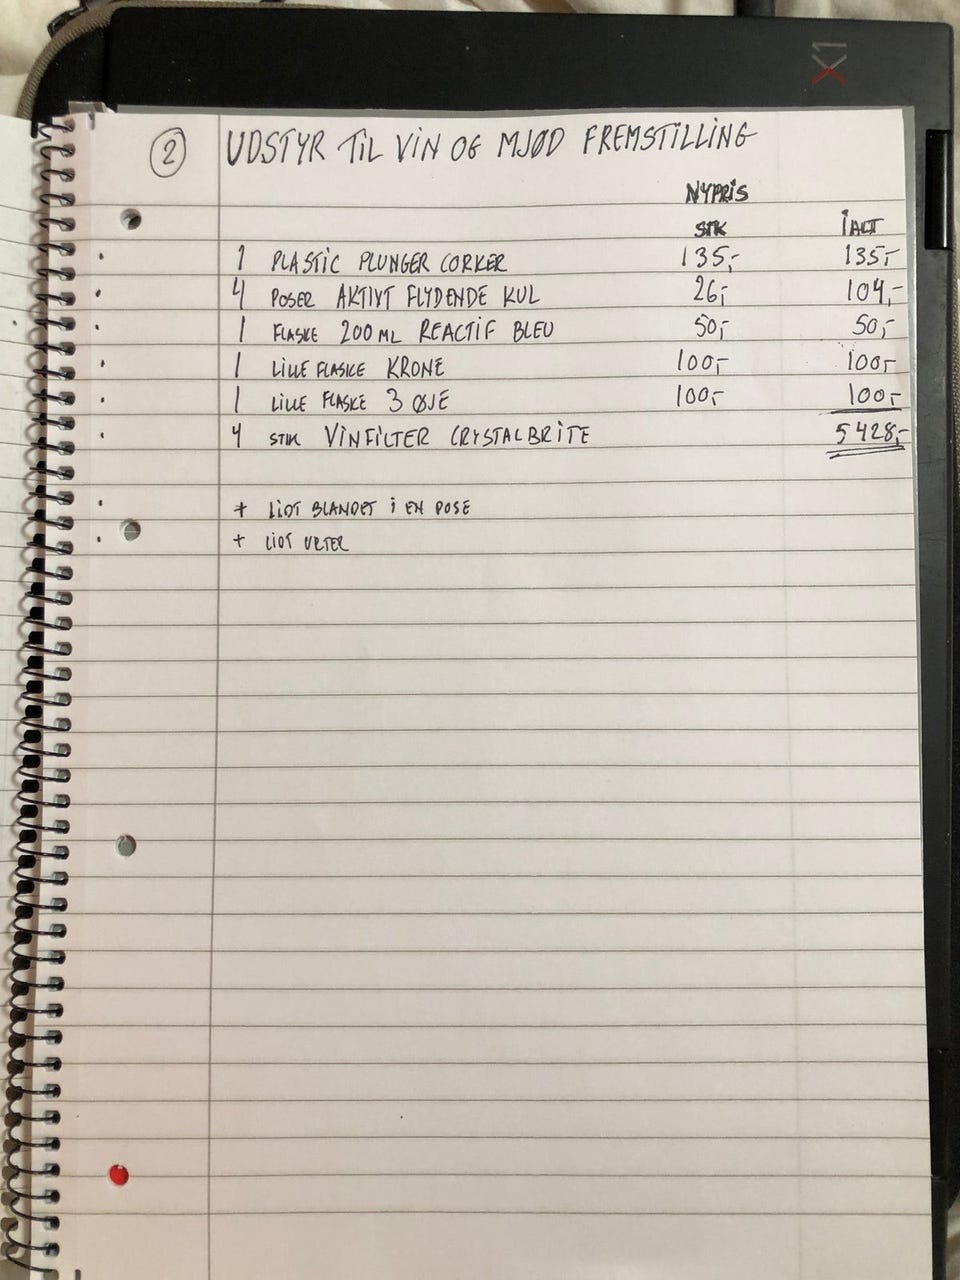 X1
2 UDSTYR TIL VIN OG MJØD FREMSTILLING
NYPRIS
STK IALT
1 PLASTIC PLUNGER CORKER 135,- 135,-
4 POSER AKTIVT FLYDENDE KUL 26,- 104,-
1 FLASKE 200 ML REACTIF BLEU 50,- 50,-
1 LILLE FLASKE KRONE 100,- 100,-
1 LILLE FLASKE 3 ØJE 100,- 100,-
4 STK VINFILTER CRYSTALBRITE 5428,-
+ LIDT BLANDET I EN POSE
+ LIDT URTER